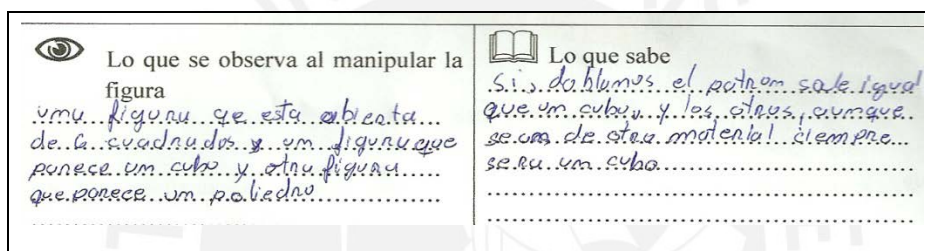 Lo que se observa al manipular la
figura
umu figuru qe esta abienta
de 6 cuadrudos y um figuru que
parece um cubo y otru figuru
que parece um poliedro
Lo que sabe
Si doblumos el patrom sale igual
que um cubo, y los otrus, aumque
seam de otro material ciempre
seru um cubo